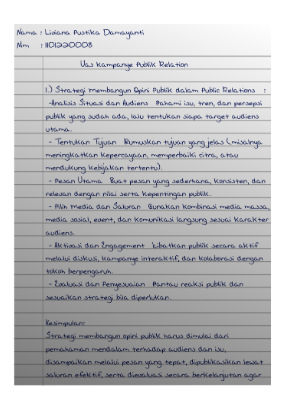 Nama : Liviana Pustika Damayanti
Nim : 1101220008
Uas Kampanye Publik Relation
1.) Strategi membangun Opini Publik dalam Public Relations :
-Analisis Situasi dan Audiens Pahami isu, tren, dan persepsi
publik yang sudah ada, lalu tentukan siapa target audiens
utama.
- Tentukan Tujuan Rumuskan tujuan yang jelas (misalnya
meningkatkan kepercayaan, memperbaiki citra, atau
mendukung kebijakan tertentu).
- Pesan Utama Buat pesan yang sederhana, konsisten, dan
relevan dengan nilai serta kepentingan publik.
- Pilih Media dan Saluran Gunakan kombinasi media massa,
media sosial, event, dan komunikasi langsung sesuai karakter
audiens.
- Aktivasi dan Engagement Libatkan publik secara aktif
melalui diskusi, kampanye interaktif, dan kolaborasi dengan
tokoh berpengaruh.
- Evaluasi dan Penyesuaian Pantau reaksi publik dan
sesuaikan strategi bila diperlukan.
Kesimpulan:
Strategi membangun opini publik harus dimulai dari
pemahaman mendalam terhadap audiens dan isu,
disampaikan melalui pesan yang tepat, dipublikasikan lewat
saluran efektif, serta dievaluasi secara berkelanjutan agar